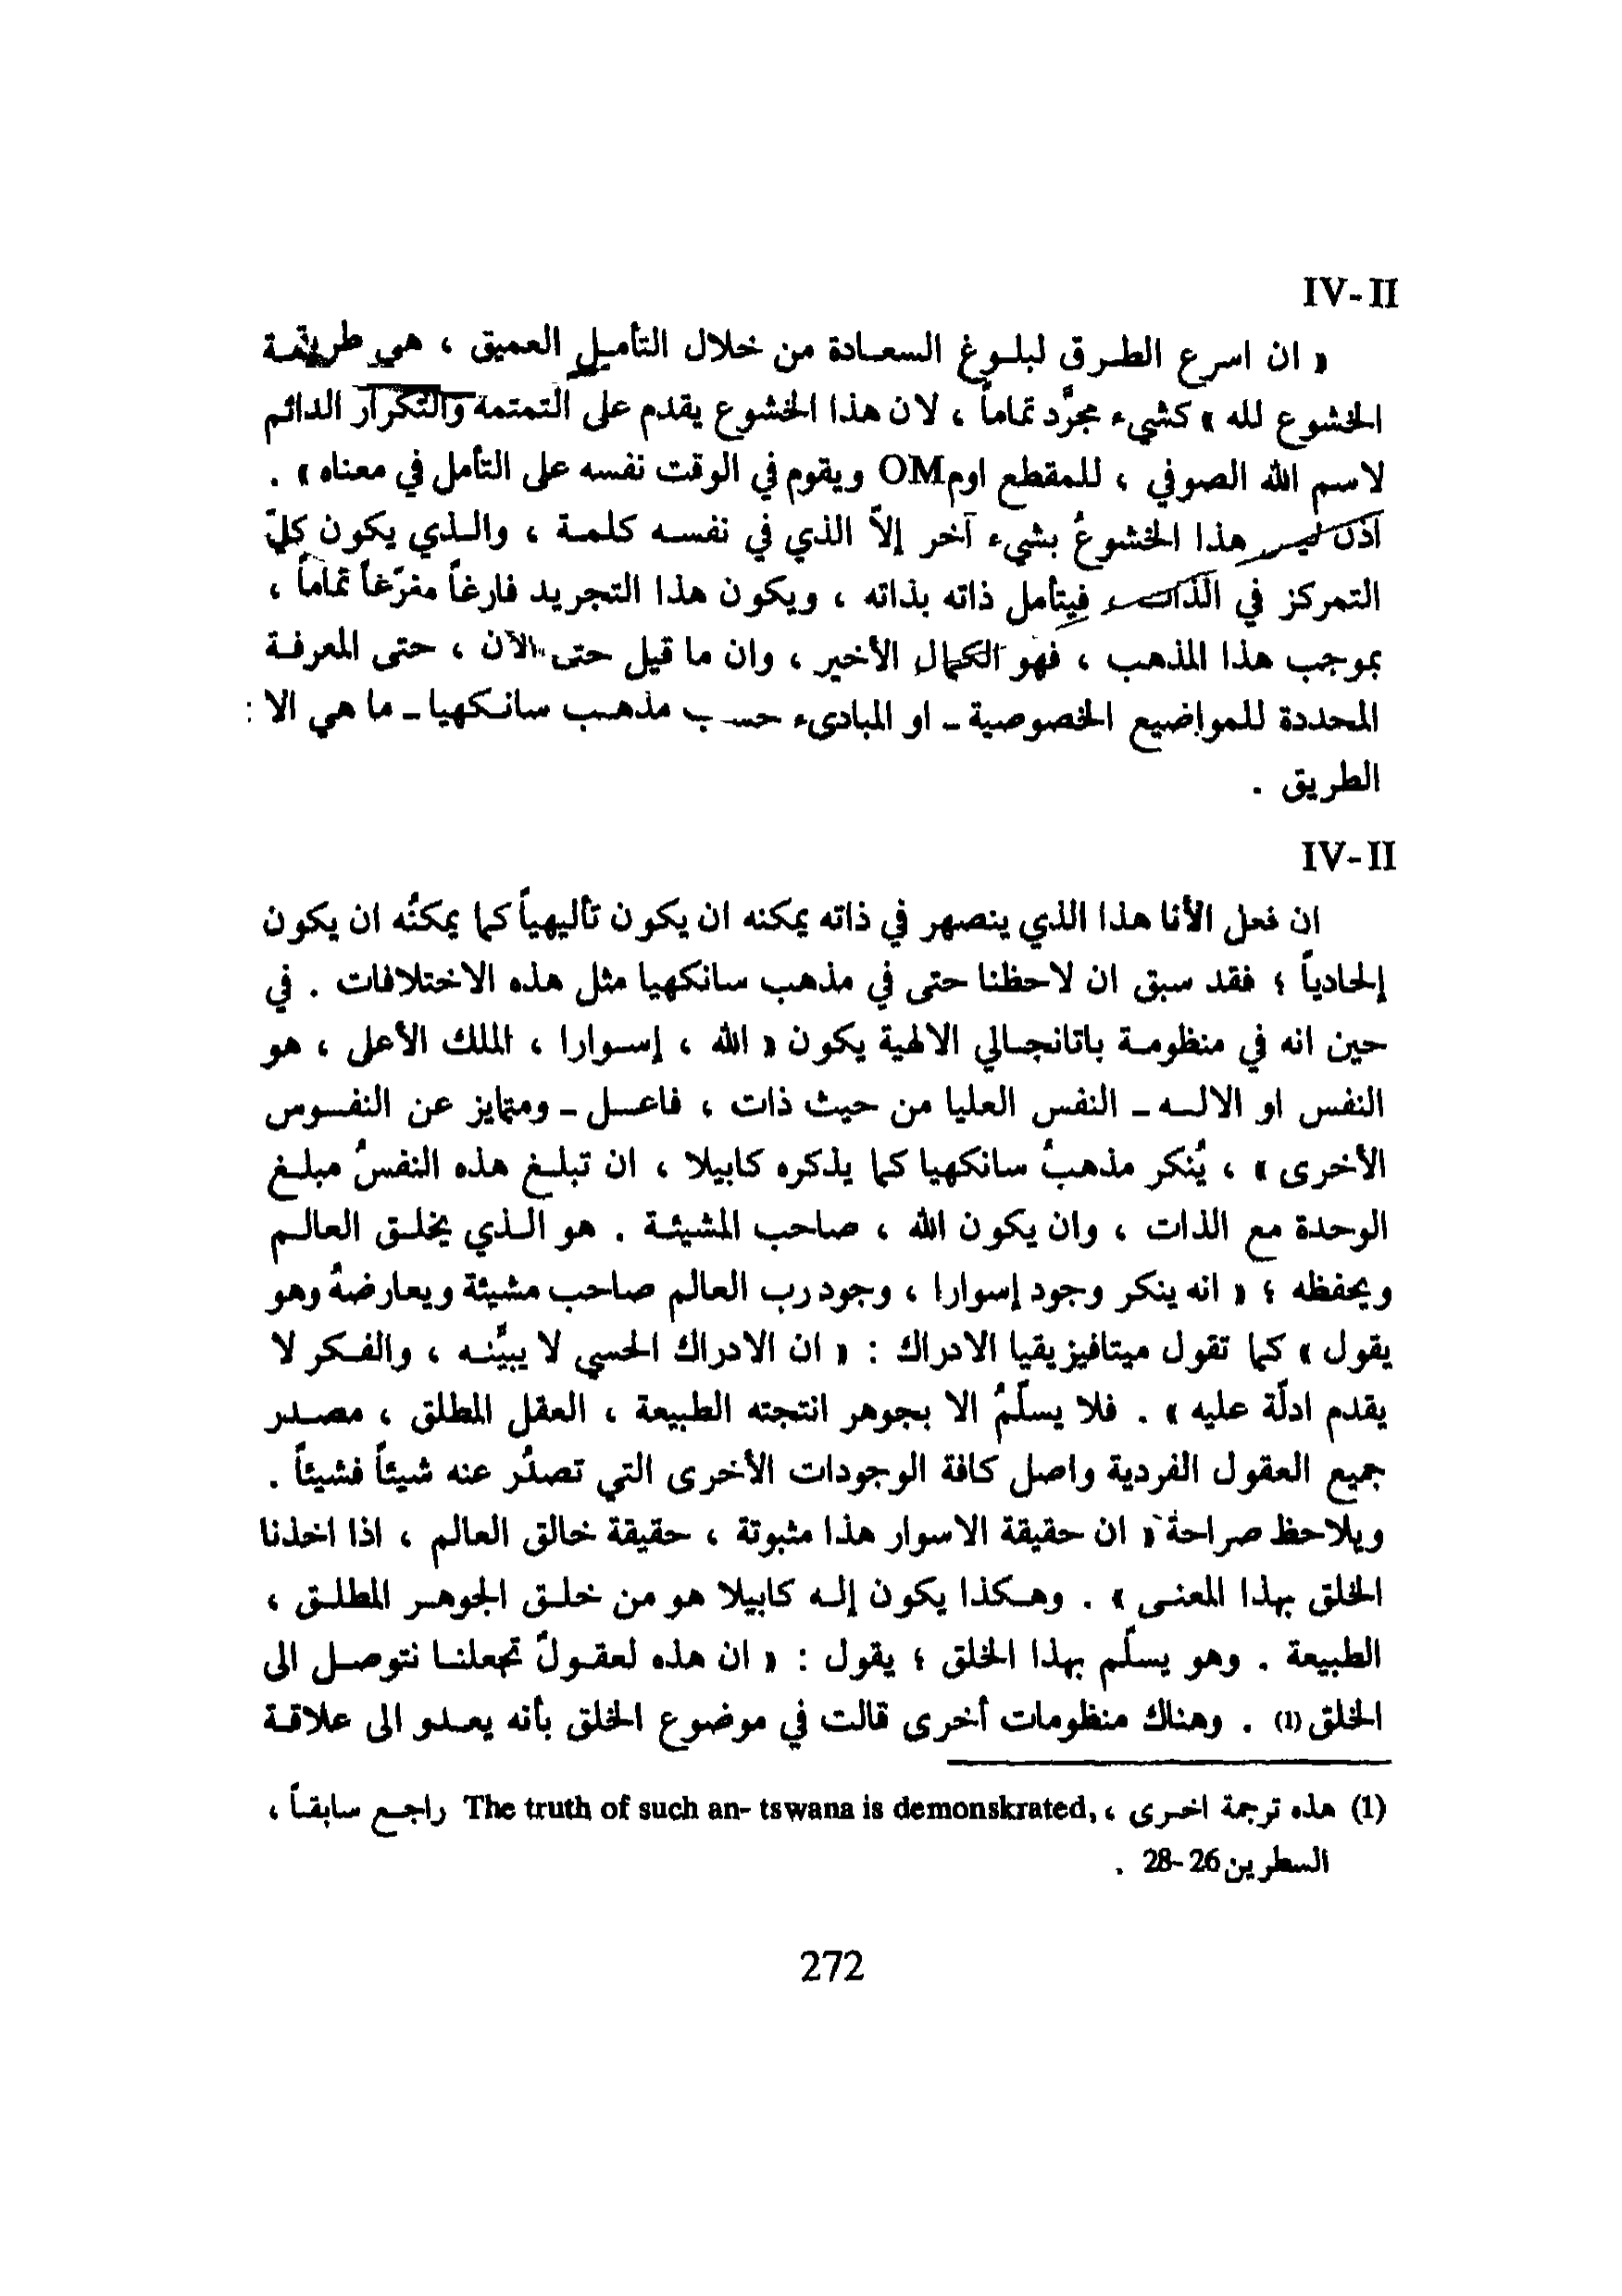 IV-II
« ان اسرع الطرق لبلوغ السعادة من خلال التأمل العميق ، هي طريقة
الخشوع لله » كشيء مجرَّد تماماً ، لان هذا الخشوع يقدم على التمتمة والتكرار الدائم
لاسم الله الصوفي ، للمقطع اوم OM ويقوم في الوقت نفسه على التأمل في معناه » .
اذن ليس هذا الخشوعُ بشيء آخر إلاّ الذي في نفسه كلمة ، والذي يكون كلّ
التمركز في الذات ، فيتأمل ذاته بذاته ، ويكون هذا التجريد فارغاً مفرّغاً تماماً ،
بموجب هذا المذهب ، فهو الكمال الأخير ، وان ما قيل حتى الآن ، حتى المعرفة
المحددة للمواضيع الخصوصية ـ او المبادىء حسب مذهب سانكهيا ـ ما هي الا :
الطريق .
IV-II
ان فعل الأنا هذا الذي ينصهر في ذاته يمكنه ان يكون تأليهياً كما يمكنُه ان يكون
إلحادياً ؛ فقد سبق ان لاحظنا حتى في مذهب سانكهيا مثل هذه الاختلافات . في
حين انه في منظومة باتانجالي الالهية يكون « الله ، إسوارا ، الملك الأعلى ، هو
النفس او الاله ـ النفس العليا من حيث ذات ، فاعل ـ ومتمايز عن النفوس
الأخرى » ، يُنكر مذهبُ سانكهيا كما يذكره كابيلا ، ان تبلغ هذه النفسُ مبلغ
الوحدة مع الذات ، وان يكون الله ، صاحب المشيئة . هو الذي يخلق العالم
ويحفظه ؛ « انه ينكر وجود إسوارا ، وجود رب العالم صاحب مشيئة ويعارضهُ وهو
يقول » كما تقول ميتافيزيقيا الادراك : « ان الادراك الحسي لا يبيِّنه ، والفكر لا
يقدم ادلّة عليه » . فلا يسلّمُ الا بجوهر انتجته الطبيعة ، العقل المطلق ، مصدر
جميع العقول الفردية واصل كافة الوجودات الأخرى التي تصدُر عنه شيئاً فشيئاً .
ويلاحظ صراحة « ان حقيقة الاسوار هذا مثبوتة ، حقيقة خالق العالم ، اذا اخذنا
الخلق بهذا المعنى » . وهكذا يكون إله كابيلا هو من خلق الجوهر المطلق ،
الطبيعة . وهو يسلّم بهذا الخلق ؛ يقول : « ان هذه لعقولٌ تجعلنا نتوصل الى
الخلق (1) . وهناك منظومات أخرى قالت في موضوع الخلق بأنه يعدو الى علاقة
(1) هذه ترجمة اخرى ، The truth of such an- tswana is demonskrated, راجع سابقاً ،
السطرين 26-28 .
272